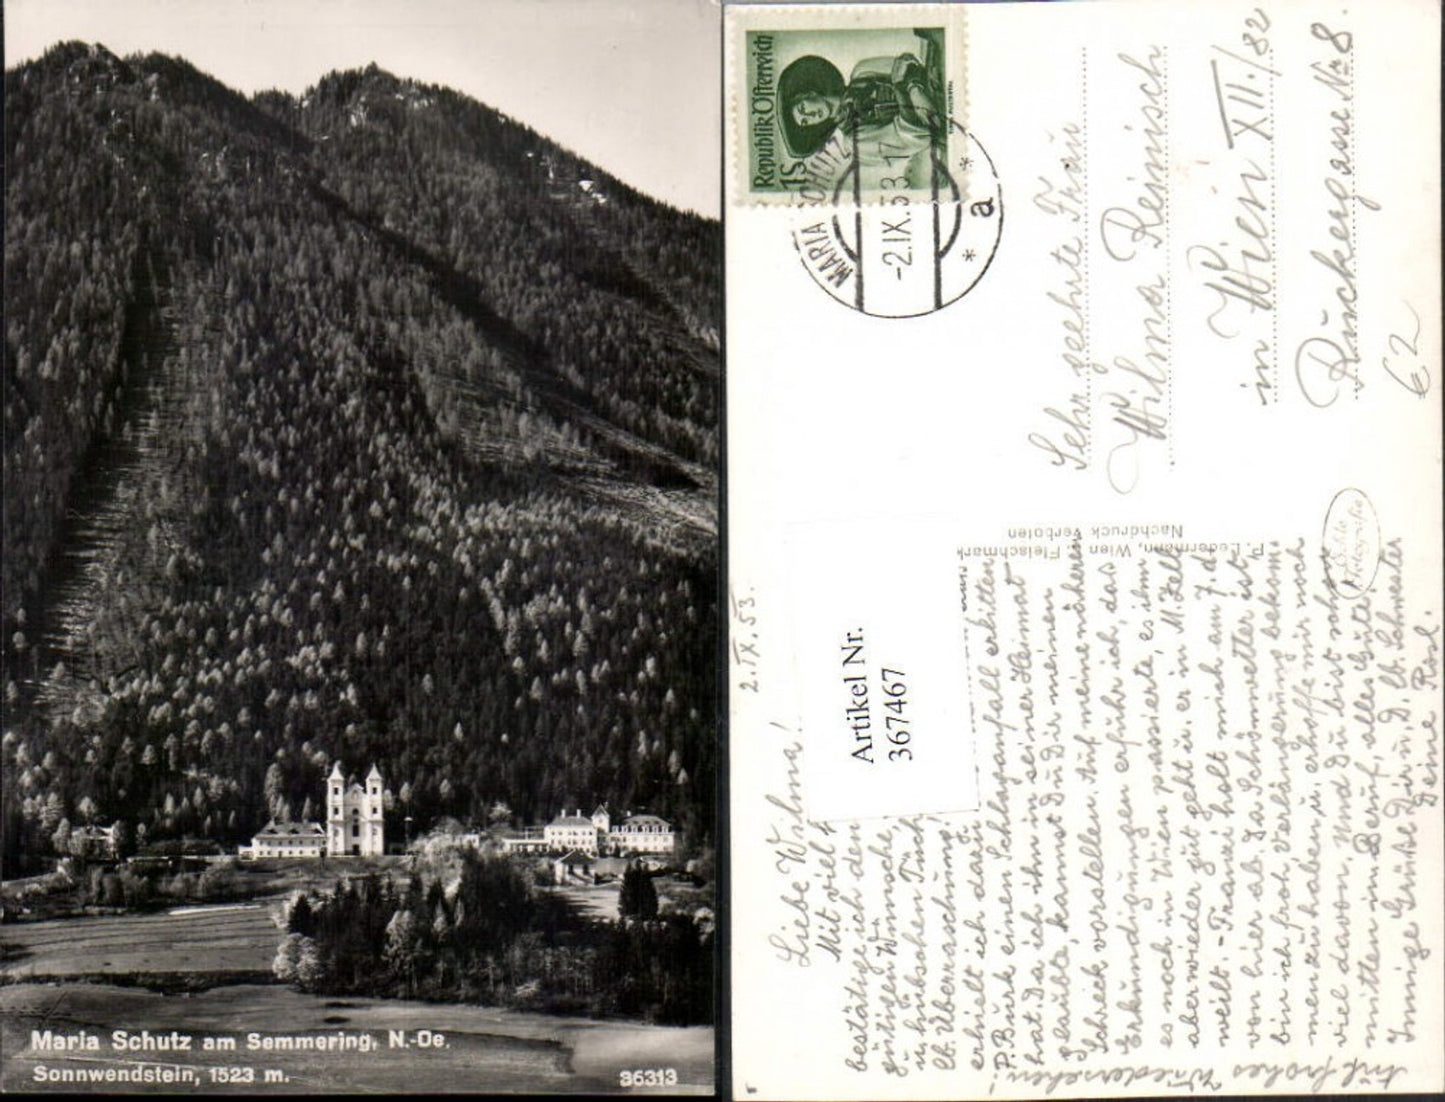 Maria Schutz am Semmering, N.-Oe.
Sonnwendstein, 1523 m.
36313
Republik Österreich
1S
MARIA SCHUTZ
-2.IX.53.17
* a *
Sehr geehrte Frau
Wilma Reinisch
in Wien XII./82
Ruckergasse No 8.
62
P. Ledermann, Wien I, Fleischmarkt
Nachdruck verboten
Artikel Nr.
367467
2.IX.53.
Liebe Wilma!
Mit viel
bestätige ich den
günstigen Wünsche,
u. hübschen
lb. Überraschung,
erhielt ich
P. Burk einen Schlaganfall erlitten
hat. Da ich ihn in seiner Heimat
glaubte, kannst Du Dir meinen
Schreck vorstellen. Auf meine näheren
Erkundigungen erfuhr ich, das
es noch in Wien passierte, es ihm
aber wieder gut geht u. er in M. Zell
weilt. - Franzi holt mich am 7. d.
von hier ab. Da Schönwetter ist,
bin ich froh, Verlängerung bekom
men zu haben u. erhoffe mir noch
viel davon, und Du bist schon
mitten im Beruf, alles Gute!
Innige Grüße Dir u. D. lb. Schwester
Deine Risl.
Auf frohes Wiedersehen!